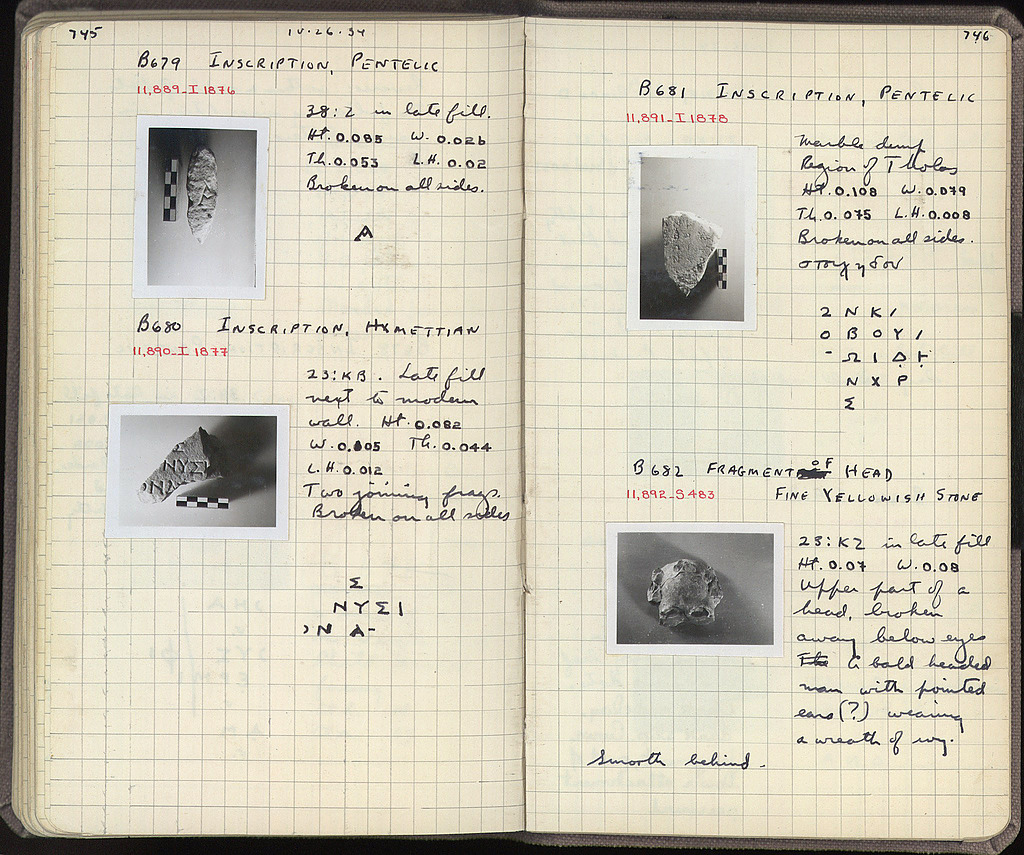 745
IV·26·34
B679 INSCRIPTION, PENTELIC
11,889_I 1876
38:Z in late fill.
Ht. 0.085 W. 0.026
Th. 0.053 L.H. 0.02
Broken on all sides.
A
B680 INSCRIPTION, HYMETTIAN
11,890_I 1877
23:KB. Late fill
next to modern
wall. Ht. 0.082
W. 0.105 Th. 0.044
L.H. 0.012
Two joining frags.
Broken on all sides
Σ
ΝΥΣΙ
Ν Α-
746
B681 INSCRIPTION, PENTELIC
11,891_I 1878
Marble dump
Region of Tholos
Ht. 0.108 W. 0.079
Th. 0.075 L.H. 0.008
Broken on all sides.
στοιχηδον
Σ Ν Κ /
Ο Β Ο Υ /
- Ω Ι Δ Ͱ
Ν Χ Ρ
Σ
B682 FRAGMENT OF HEAD
11,892_S 483
FINE YELLOWISH STONE
23:KZ in late fill
Ht. 0.07 W. 0.08
Upper part of a
head, broken
away below eyes
A bald headed
man with pointed
ears (?) wearing
a wreath of ivy.
Smooth behind.
ΝΥΣΙ